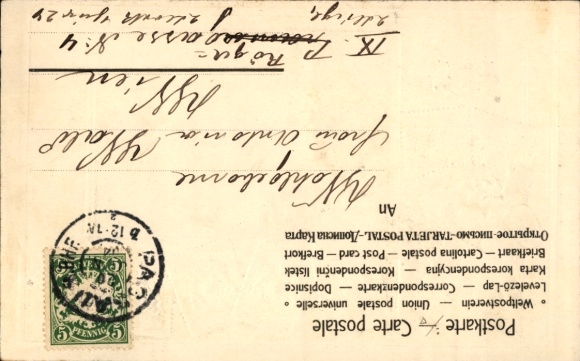 Postkarte — Carte postale
° Weltpostverein — Union postale universelle °
Levelező-Lap — Correspondenzkarte — Dopisnice
Karta korespondencyjna — Korespondenční lístek
Briefkaart — Cartolina postale — Post card — Brefkort
Открытое письмо—TARJETA POSTAL—Дописна Карта
An
5 PFENNIG 5
PAS
12-1A
Wohlgeborne
Frau Antonia
Wien
IX.
gasse No 4